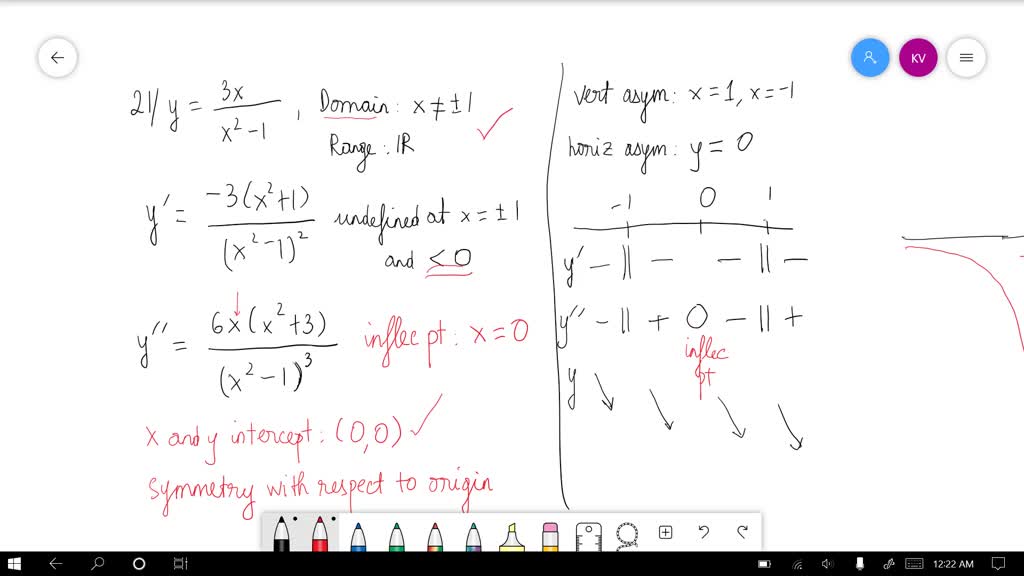 21/ y = 3x / (x² - 1), Domain: x ≠ ±1 ✓
Range: ℝ
y' = -3(x²+1) / (x²-1)² undefined at x = ±1
and < 0
y'' = 6x(x²+3) / (x²-1)³ inflec pt: x = 0
x and y intercept: (0,0) ✓
symmetry with respect to origin
vert asym: x = 1, x = -1
horiz asym: y = 0
-1 0 1
y' - || - - || -
y'' - || + 0 - || +
inflec
pt
y ↘ ↘ ↘ ↘
KV
12:22 AM